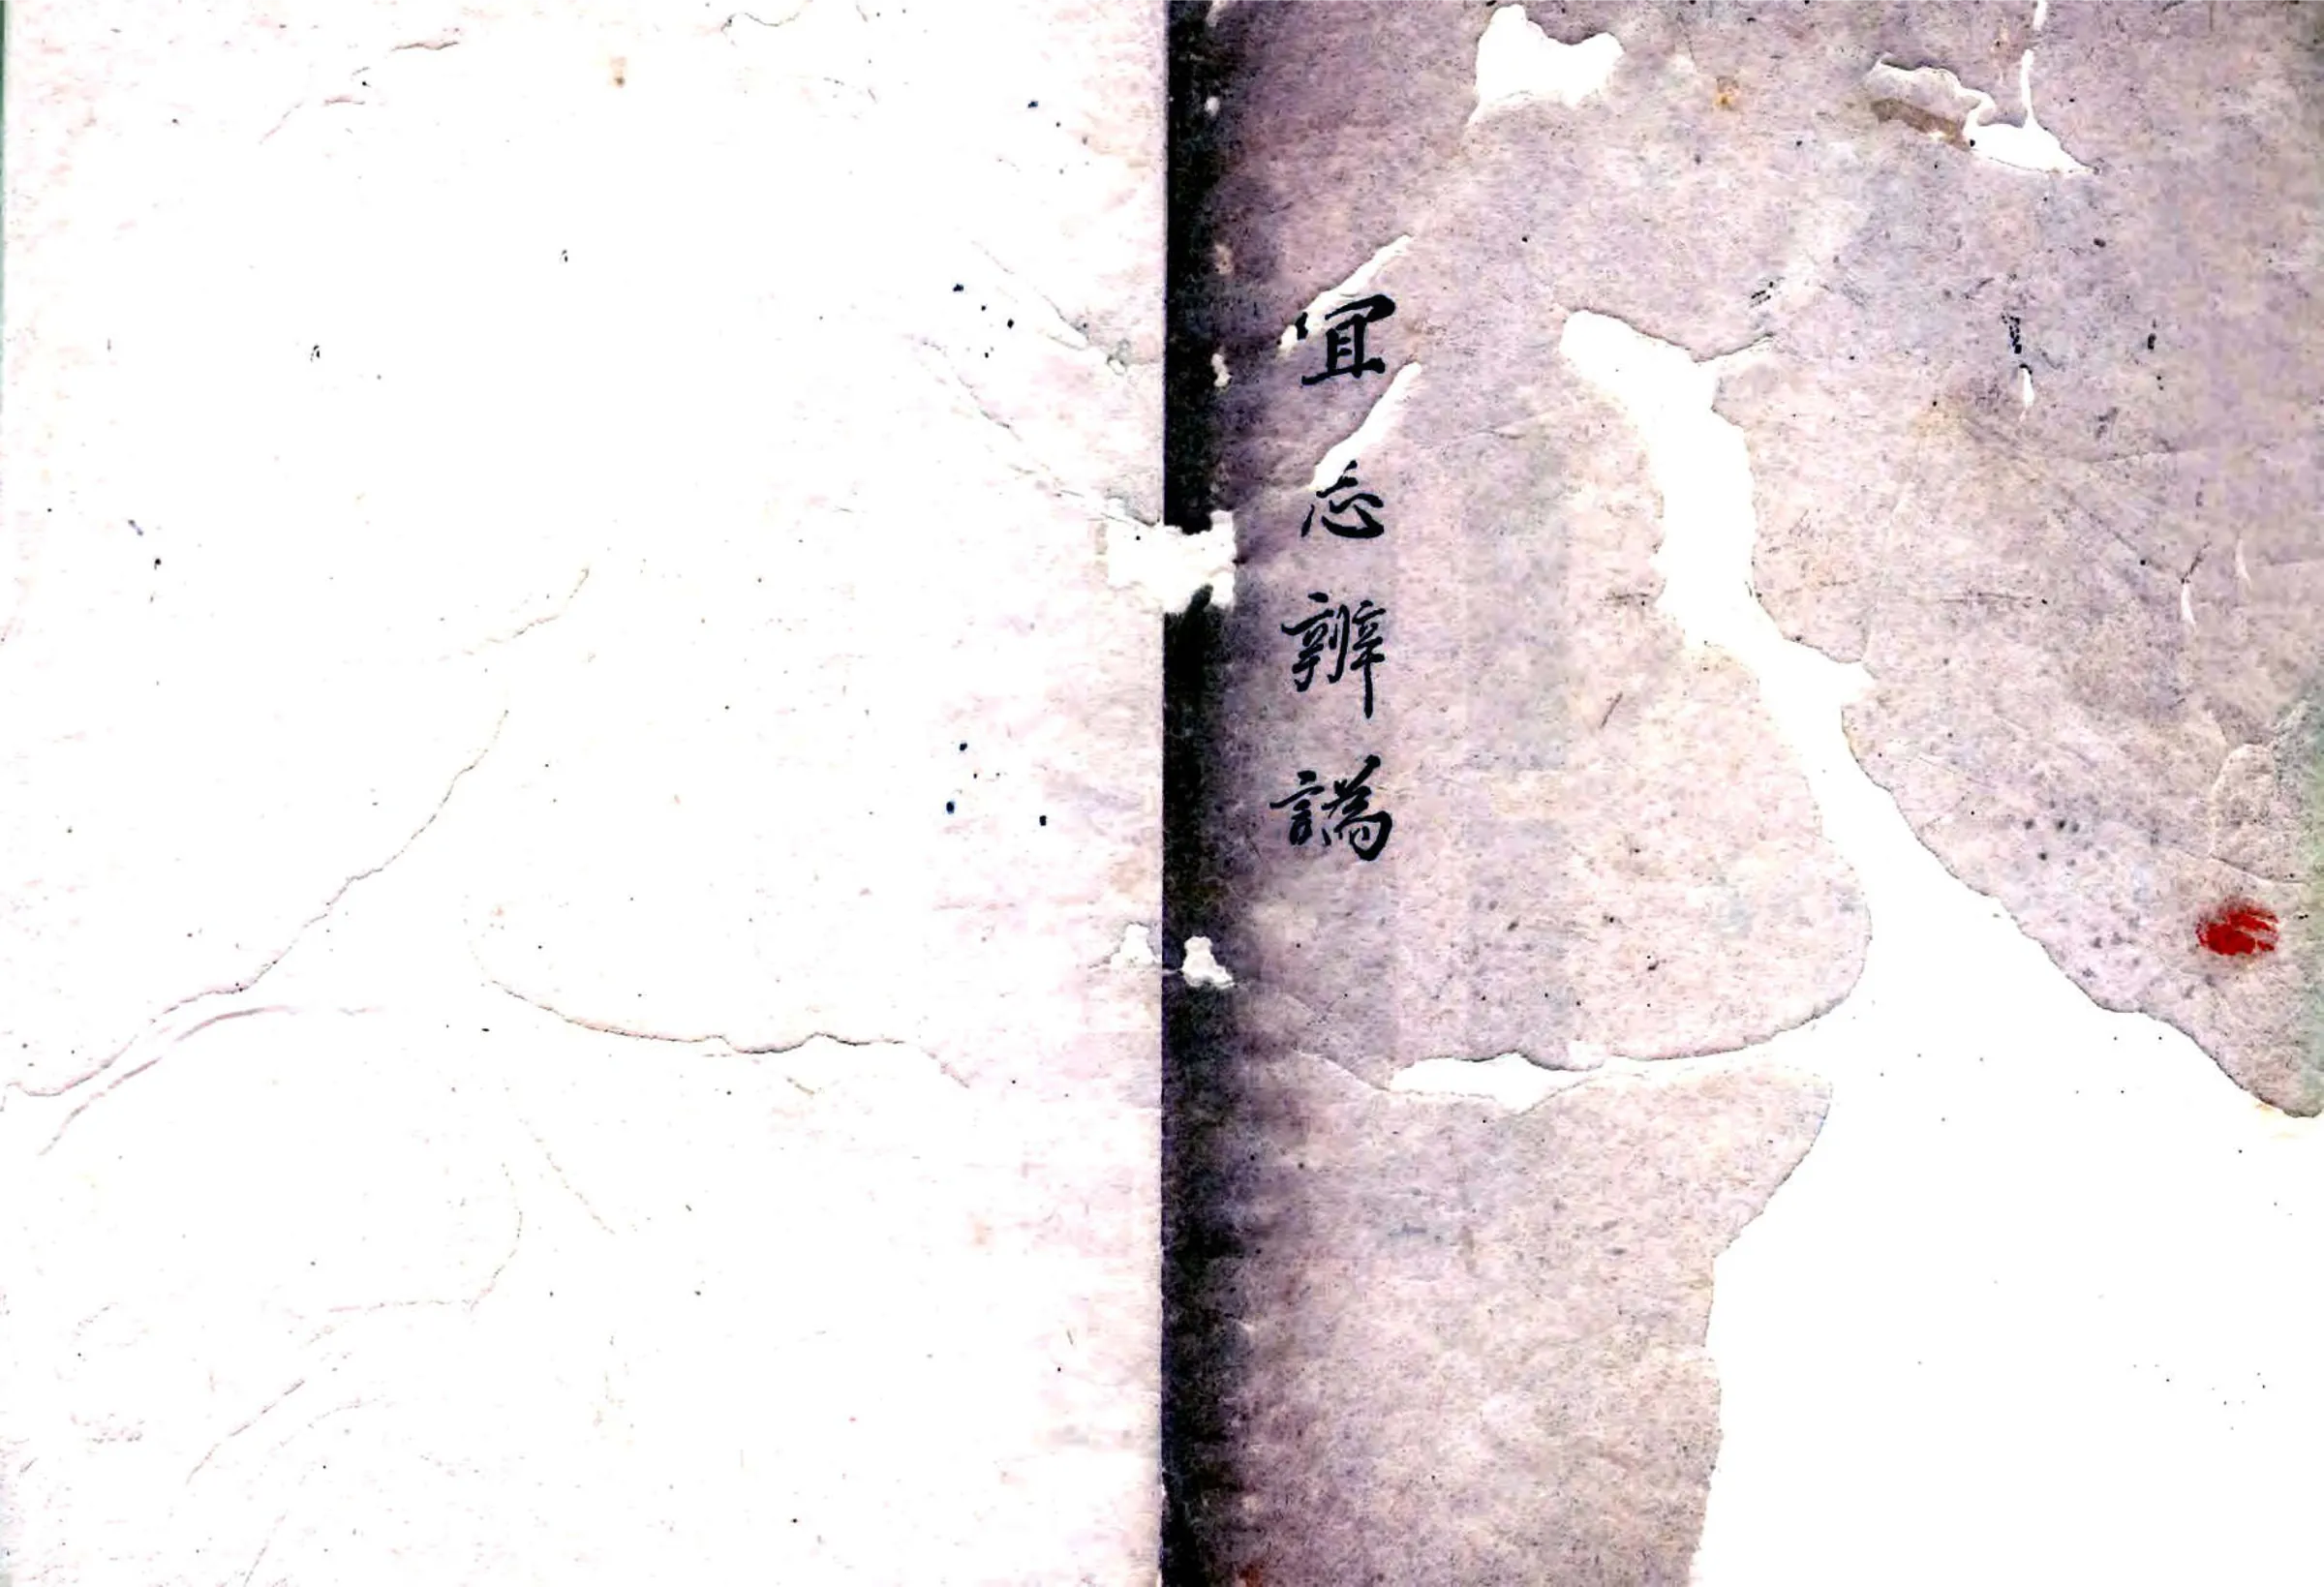 宜忘辨譌